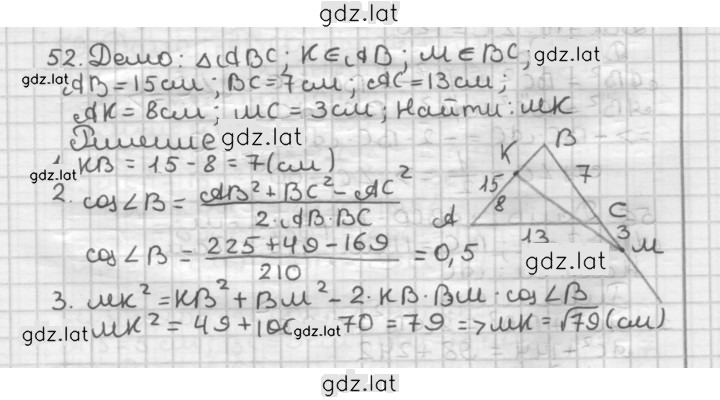 gdz.lat
52. Дано: △ABC; K∈AB; M∈BC; gdz.lat
gdz.lat AB=15см; BC=7см; AC=13см;
AK=8см; MC=3см; Найти: MK
Решение gdz.lat
gdz.lat 1. KB = 15-8=7(см)
2. cos∠B = (AB²+BC²-AC²)/(2·AB·BC)
cos∠B = (225+49-169)/210 = 0,5
K B 15 7 8 A C 13 3 M
gdz.lat
3. MK²=KB²+BM²-2·KB·BM·cos∠B
gdz.lat MK²=49+100 gdz.lat 70=79 => MK=√79(см)
gdz.lat